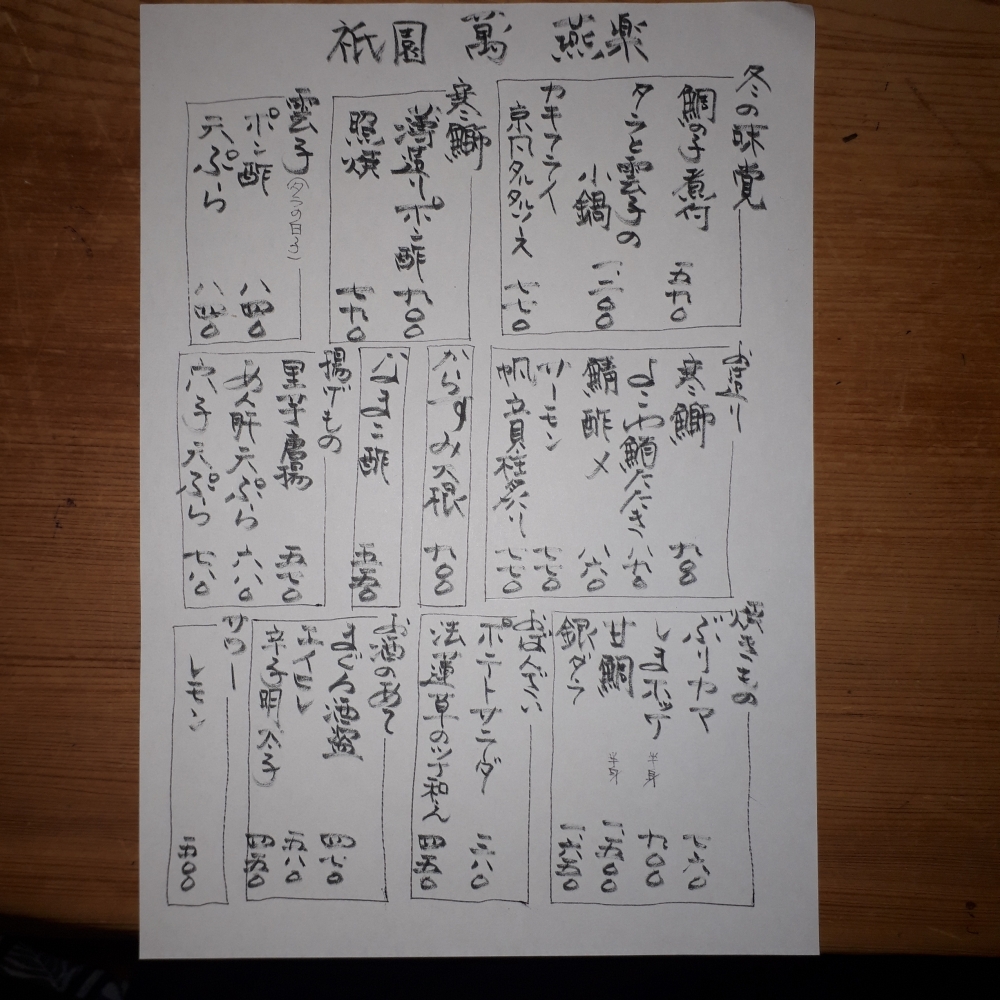 祇園 萬 燕楽
冬の味覚
鯛の子煮付 五九〇
タラと雲子の
小鍋 一、二〇〇
カキフライ
京風タルタルソース 七七〇
寒鰤
薄造りポン酢 九〇〇
照焼 七九〇
雲子(タラの白子)
ポン酢 八四〇
天ぷら 八四〇
お造り
寒鰤
よこわ鮪たたき 八九〇
鯖酢〆 八六〇
サーモン 七七〇
帆立貝柱炙り 七七〇
からすみ大根 九〇〇
なまこ酢 五五〇
揚げもの
里芋唐揚 五七〇
あん肝天ぷら 六八〇
穴子天ぷら 七八〇
焼きもの
ぶりカマ 七六〇
しまホッケ 半身 九〇〇
甘鯛 半身 一、五〇〇
銀ダラ 一、六五〇
おばんざい
ポテトサラダ 三八〇
法蓮草のツナ和え 四五〇
お酒のあて
まぐろ酒盗 四七〇
エイヒレ 五八〇
辛子明太子 四五〇
サワー
レモン 五〇〇